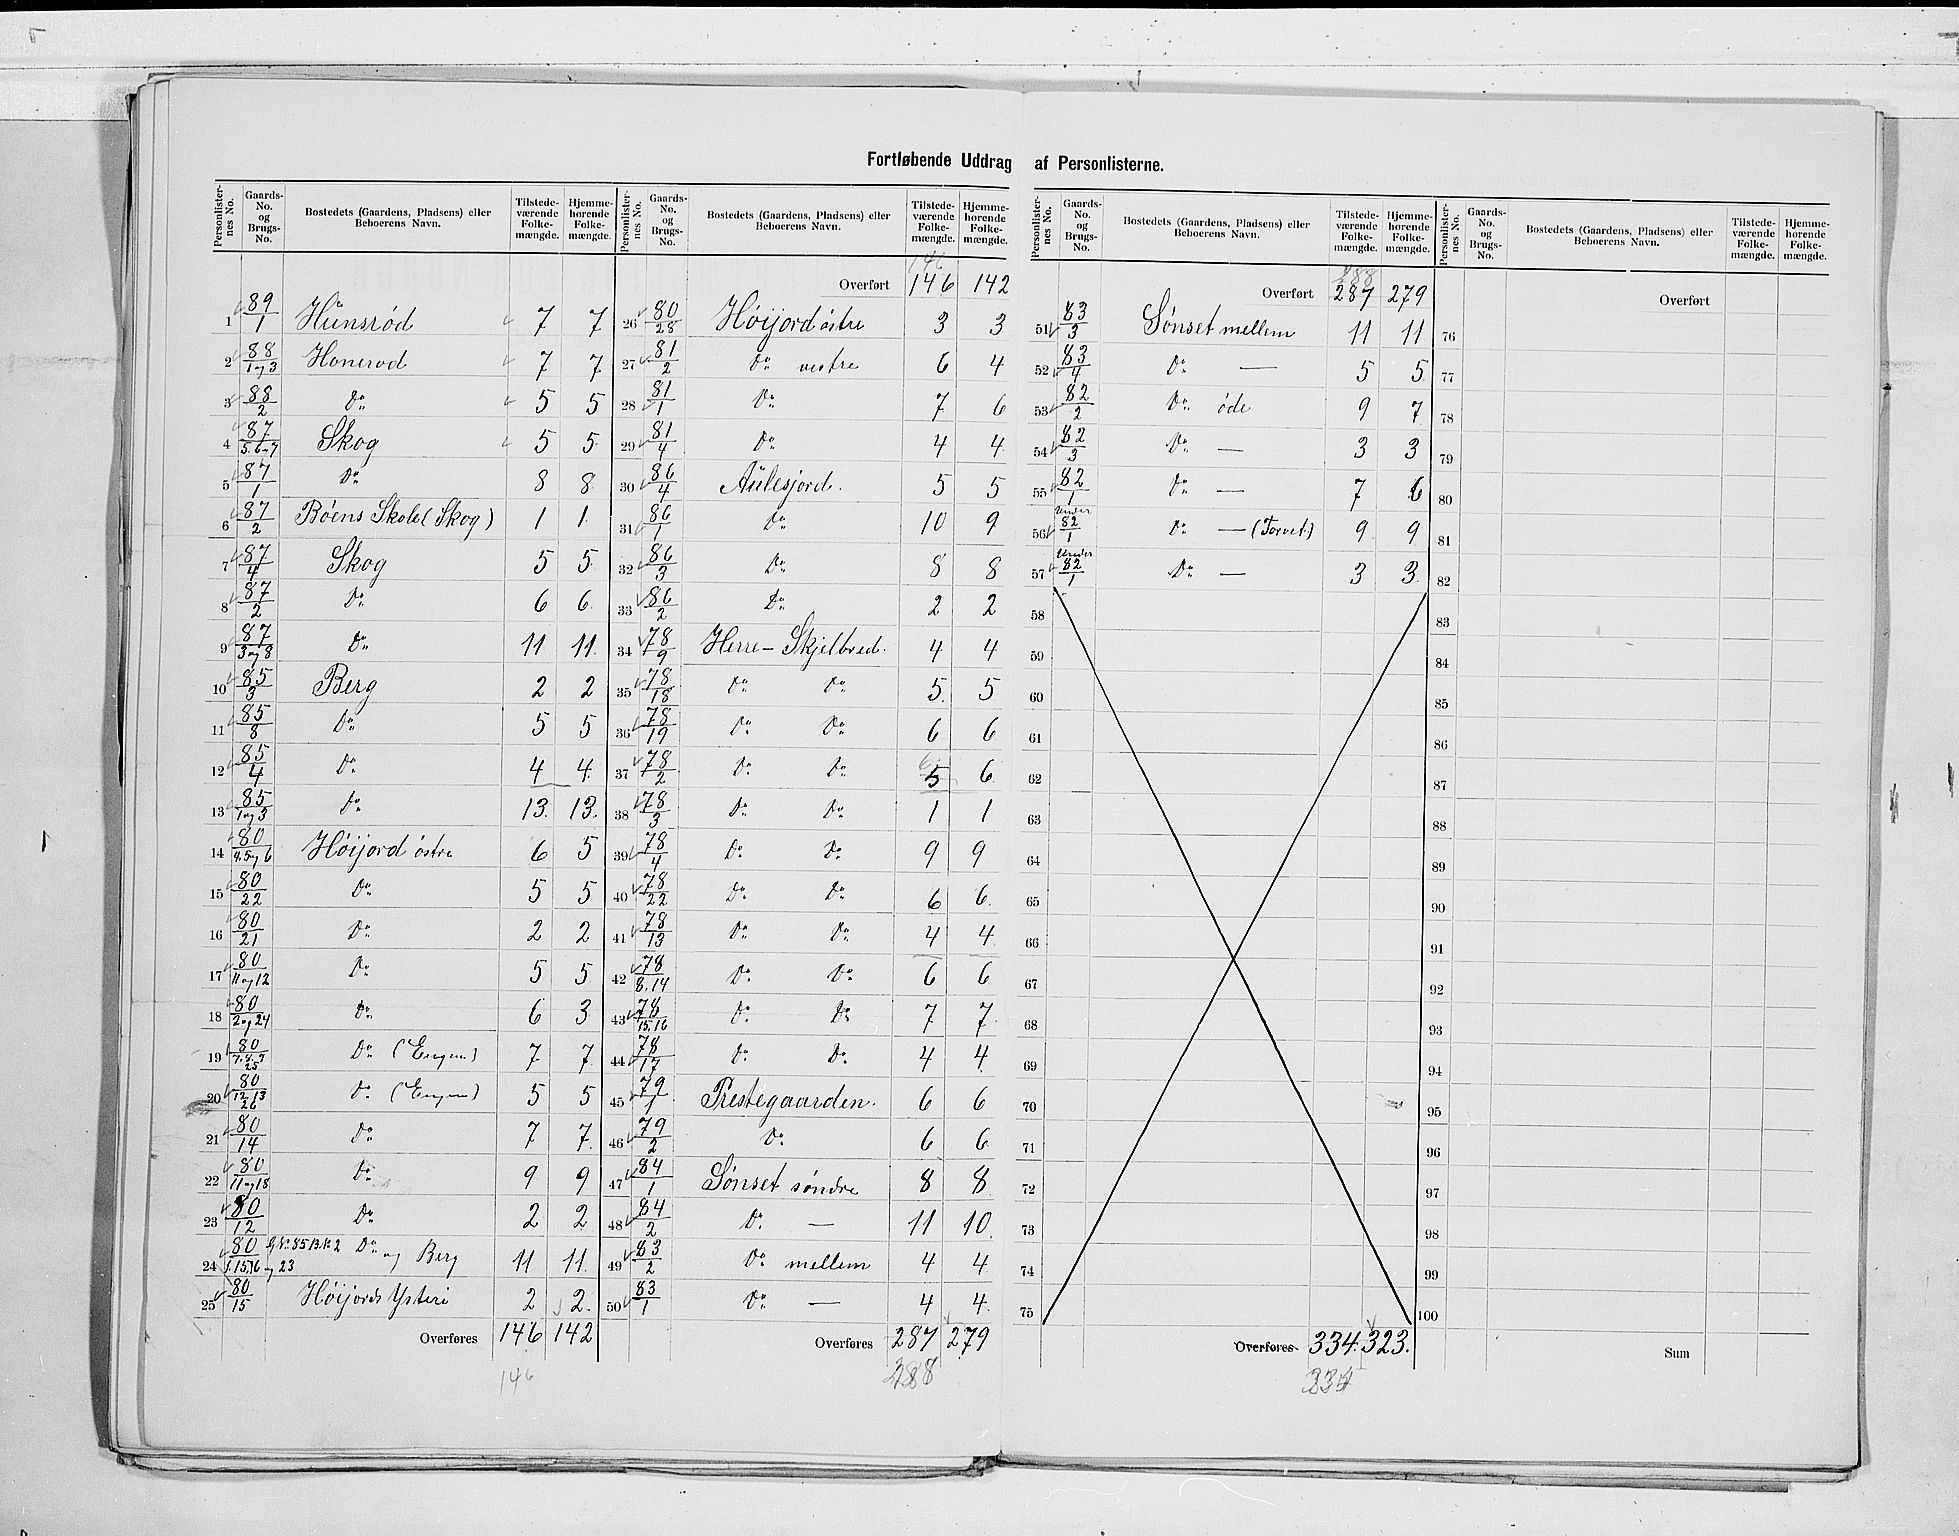 Fortløbende Uddrag af Personlisterne.
Personlisternes No. | Gaards-No. og Brugs-No. | Bostedets (Gaardens, Pladsens) eller Beboerens Navn. | Tilstedeværende Folkemængde. | Hjemmehørende Folkemængde.
1 | 89/1 | Hünsrød | 7 | 7
2 | 88/1 og 3 | Honerød | 7 | 7
3 | 88/2 | Do | 5 | 5
4 | 87/5.6 og 7 | Skog | 5 | 5
5 | 87/1 | Do | 8 | 8
6 | 87/2 | Böens Skole (Skog) | 1 | 1
7 | 87/4 | Skog | 5 | 5
8 | 87/2 | Do | 6 | 6
9 | 87/3 og 8 | Do | 11 | 11
10 | 85/3 | Berg | 2 | 2
11 | 85/8 | Do | 5 | 5
12 | 85/4 | Do | 4 | 4
13 | 85/1 og 3 | Do | 13 | 13
14 | 80/4.5 og 6 | Høijord østre | 6 | 5
15 | 80/22 | Do | 5 | 5
16 | 80/21 | Do | 2 | 2
17 | 80/11 og 12 | Do | 5 | 5
18 | 80/2 og 24 | Do | 6 | 3
19 | 80/7.8.9 25 | Do (Engen) | 7 | 7
20 | 80/12.13 26 | Do (Engen) | 5 | 5
21 | 80/14 | Do | 7 | 7
22 | 80/11 og 18 | Do | 9 | 9
23 | 80/12 | Do | 2 | 2
24 | 80/1.15.16 og 23 | G.No 85 B.No 2 Do og Berg | 11 | 11
25 | 80/15 | Høijords Ysteri | 2 | 2
Overføres | 146 | 142
146
Personlisternes No. | Gaards-No. og Brugs-No. | Bostedets (Gaardens, Pladsens) eller Beboerens Navn. | Tilstedeværende Folkemængde. | Hjemmehørende Folkemængde.
146
Overført | 146 | 142
26 | 80/28 | Høijord østre | 3 | 3
27 | 81/2 | Do vestre | 6 | 4
28 | 81/1 | Do | 7 | 6
29 | 81/4 | Do | 4 | 4
30 | 86/4 | Aülesjord | 5 | 5
31 | 86/1 | Do | 10 | 9
32 | 86/3 | Do | 8 | 8
33 | 86/2 | Do | 2 | 2
34 | 78/9 | Herre-Skjelbred | 4 | 4
35 | 78/18 | Do Do | 5 | 5
36 | 78/19 | Do Do | 6 | 6
37 | 78/2 | Do Do | 5 | 6
38 | 78/3 | Do Do | 1 | 1
39 | 78/4 | Do Do | 9 | 9
40 | 78/22 | Do Do | 6 | 6
41 | 78/13 | Do Do | 4 | 4
42 | 78/8.14 | Do Do | 6 | 6
43 | 78/15.16 | Do Do | 7 | 7
44 | 78/17 | Do Do | 4 | 4
45 | 79/1 | Prestegaarden | 6 | 6
46 | 79/2 | Do | 6 | 6
47 | 84/1 | Sønset søndre | 8 | 8
48 | 84/2 | Do — | 11 | 10
49 | 83/2 | Do mellem | 4 | 4
50 | 83/1 | Do — | 4 | 4
Overføres | 287 | 279
288
Personlisternes No. | Gaards-No. og Brugs-No. | Bostedets (Gaardens, Pladsens) eller Beboerens Navn. | Tilstedeværende Folkemængde. | Hjemmehørende Folkemængde.
288
Overført | 287 | 279
51 | 83/3 | Sønset mellem | 11 | 11
52 | 83/4 | Do — | 5 | 5
53 | 82/2 | Do øde | 9 | 7
54 | 82/3 | Do — | 3 | 3
55 | 82/1 | Do — | 7 | 6
56 | Under 82/1 | Do — (Torvet) | 9 | 9
57 | Under 82/1 | Do — | 3 | 3
58
59
60
61
62
63
64
65
66
67
68
69
70
71
72
73
74
75
Overføres | 334 | 323
Personlisternes No. | Gaards-No. og Brugs-No. | Bostedets (Gaardens, Pladsens) eller Beboerens Navn. | Tilstedeværende Folkemængde. | Hjemmehørende Folkemængde.
Overført
76
77
78
79
80
81
82
83
84
85
86
87
88
89
90
91
92
93
94
95
96
97
98
99
100
Sum